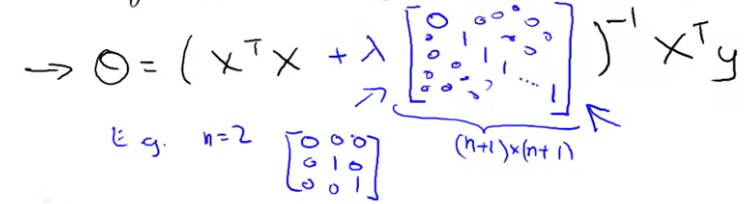 → Θ = ( X^T X + λ [ 0 0 0 0 0 0 1 0 0 0 1 0 0 1 0 0 0 ... 1 ] )^-1 X^T y
(n+1)×(n+1)
E.g. n=2 [ 0 0 0
0 1 0
0 0 1 ]